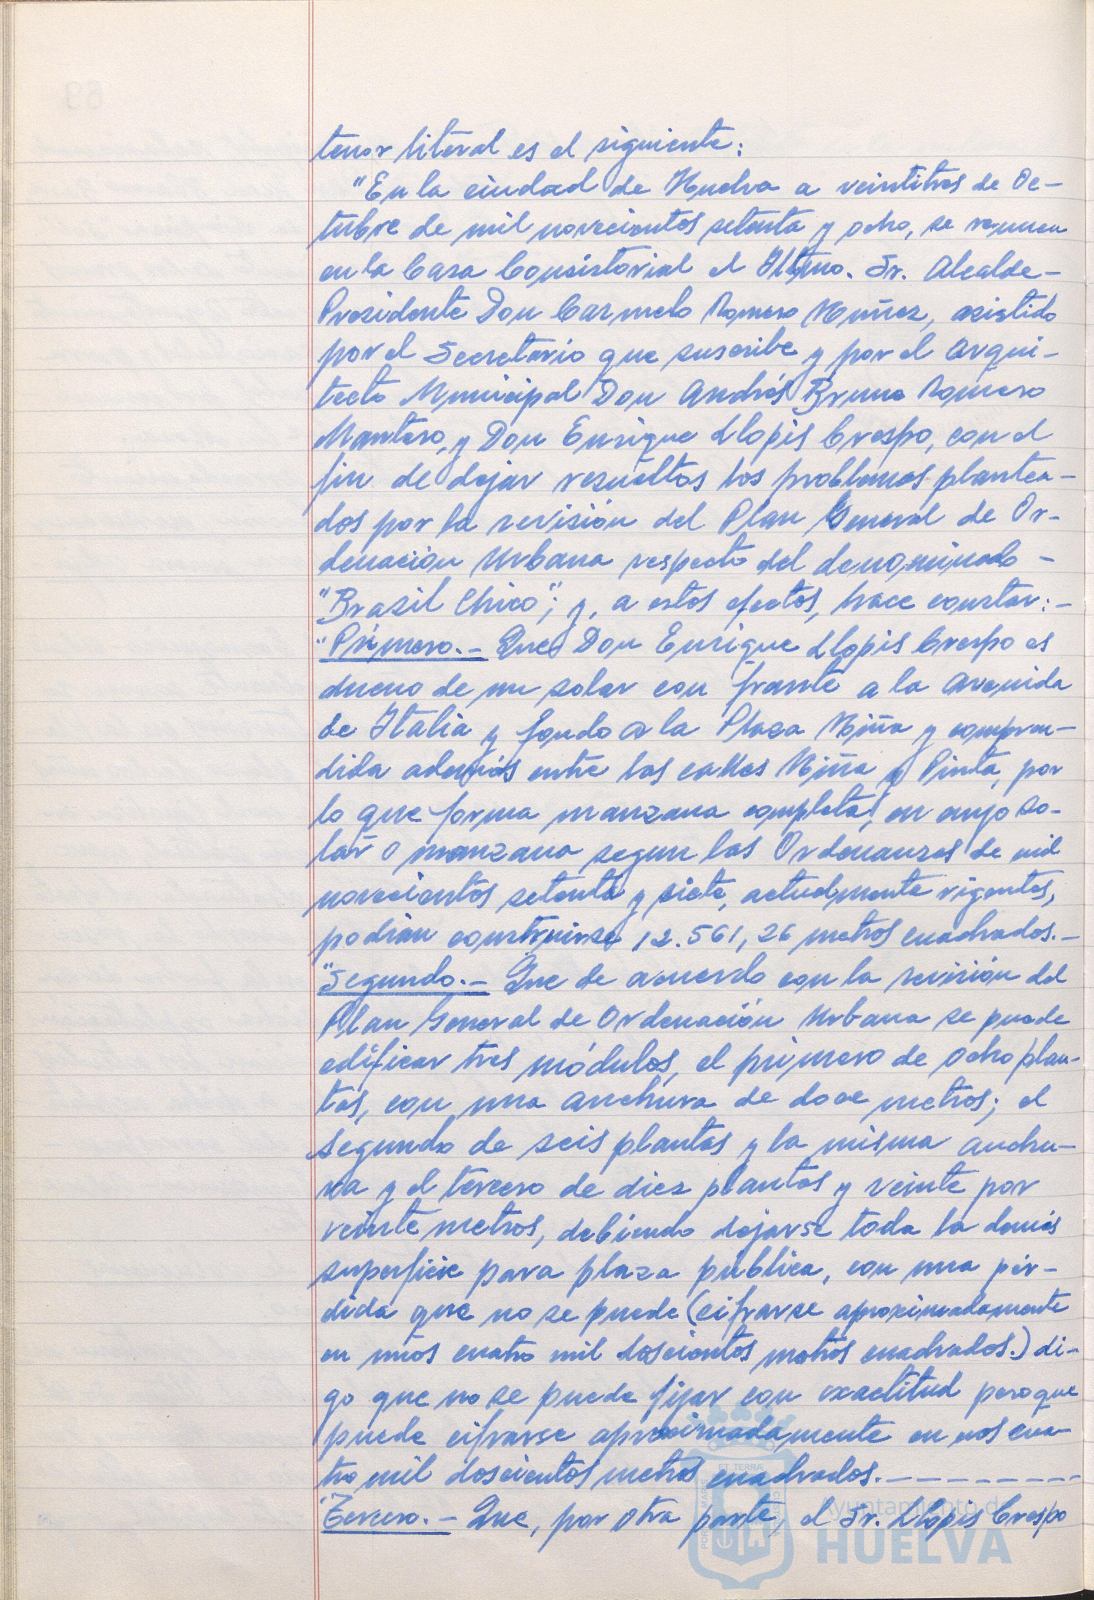 tenor literal es el siguiente:
"En la ciudad de Huelva a veintitres de Oc-
tubre de mil novecientos setenta y ocho, se reunen
en la Casa Consistorial el Iltmo. Sr. Alcalde-
Presidente Don Carmelo Romero Núñez, asistido
por el Secretario que suscribe y por el Arqui-
tecto Municipal Don Andrés Bruno Romero
Mantero, y Don Enrique Llopis Crespo, con el
fin de dejar resueltos los problemas plantea-
dos por la revisión del Plan General de Or-
denación Urbana respecto del denominado -
"Brasil Chico"; y, a estos efectos, hace constar:-
"Primero.- Que Don Enrique Llopis Crespo es
dueño de un solar con frente a la Avenida
de Italia y fondo a la Plaza Niña y compren-
dida además entre las calles Niña y Pinta, por
lo que forma manzana completa, en cuyo so-
lar o manzana segun las Ordenanzas de mil
novecientos setenta y siete, actualmente vigentes,
podian construirse 12.561,26 metros cuadrados.-
"Segundo.- Que de acuerdo con la revisión del
Plan General de Ordenación Urbana se puede
edificar tres módulos, el primero de ocho plan-
tas, con una anchura de doce metros; el
segundo de seis plantas y la misma anchu-
ra y el tercero de diez plantas y veinte por
veinte metros, debiendo dejarse toda la demás
superficie para plaza pública, con una pér-
dida que no se puede (cifrarse aproximadamente
en unos cuatro mil doscientos metros cuadrados.) di-
go que no se puede fijar con exactitud pero que
puede cifrarse aproximadamente en unos cua-
tro mil doscientos metros cuadrados.- - - - - - - -
"Tercero.- Que, por otra parte, el Sr. Llopis Crespo
Ayuntamiento de
HUELVA